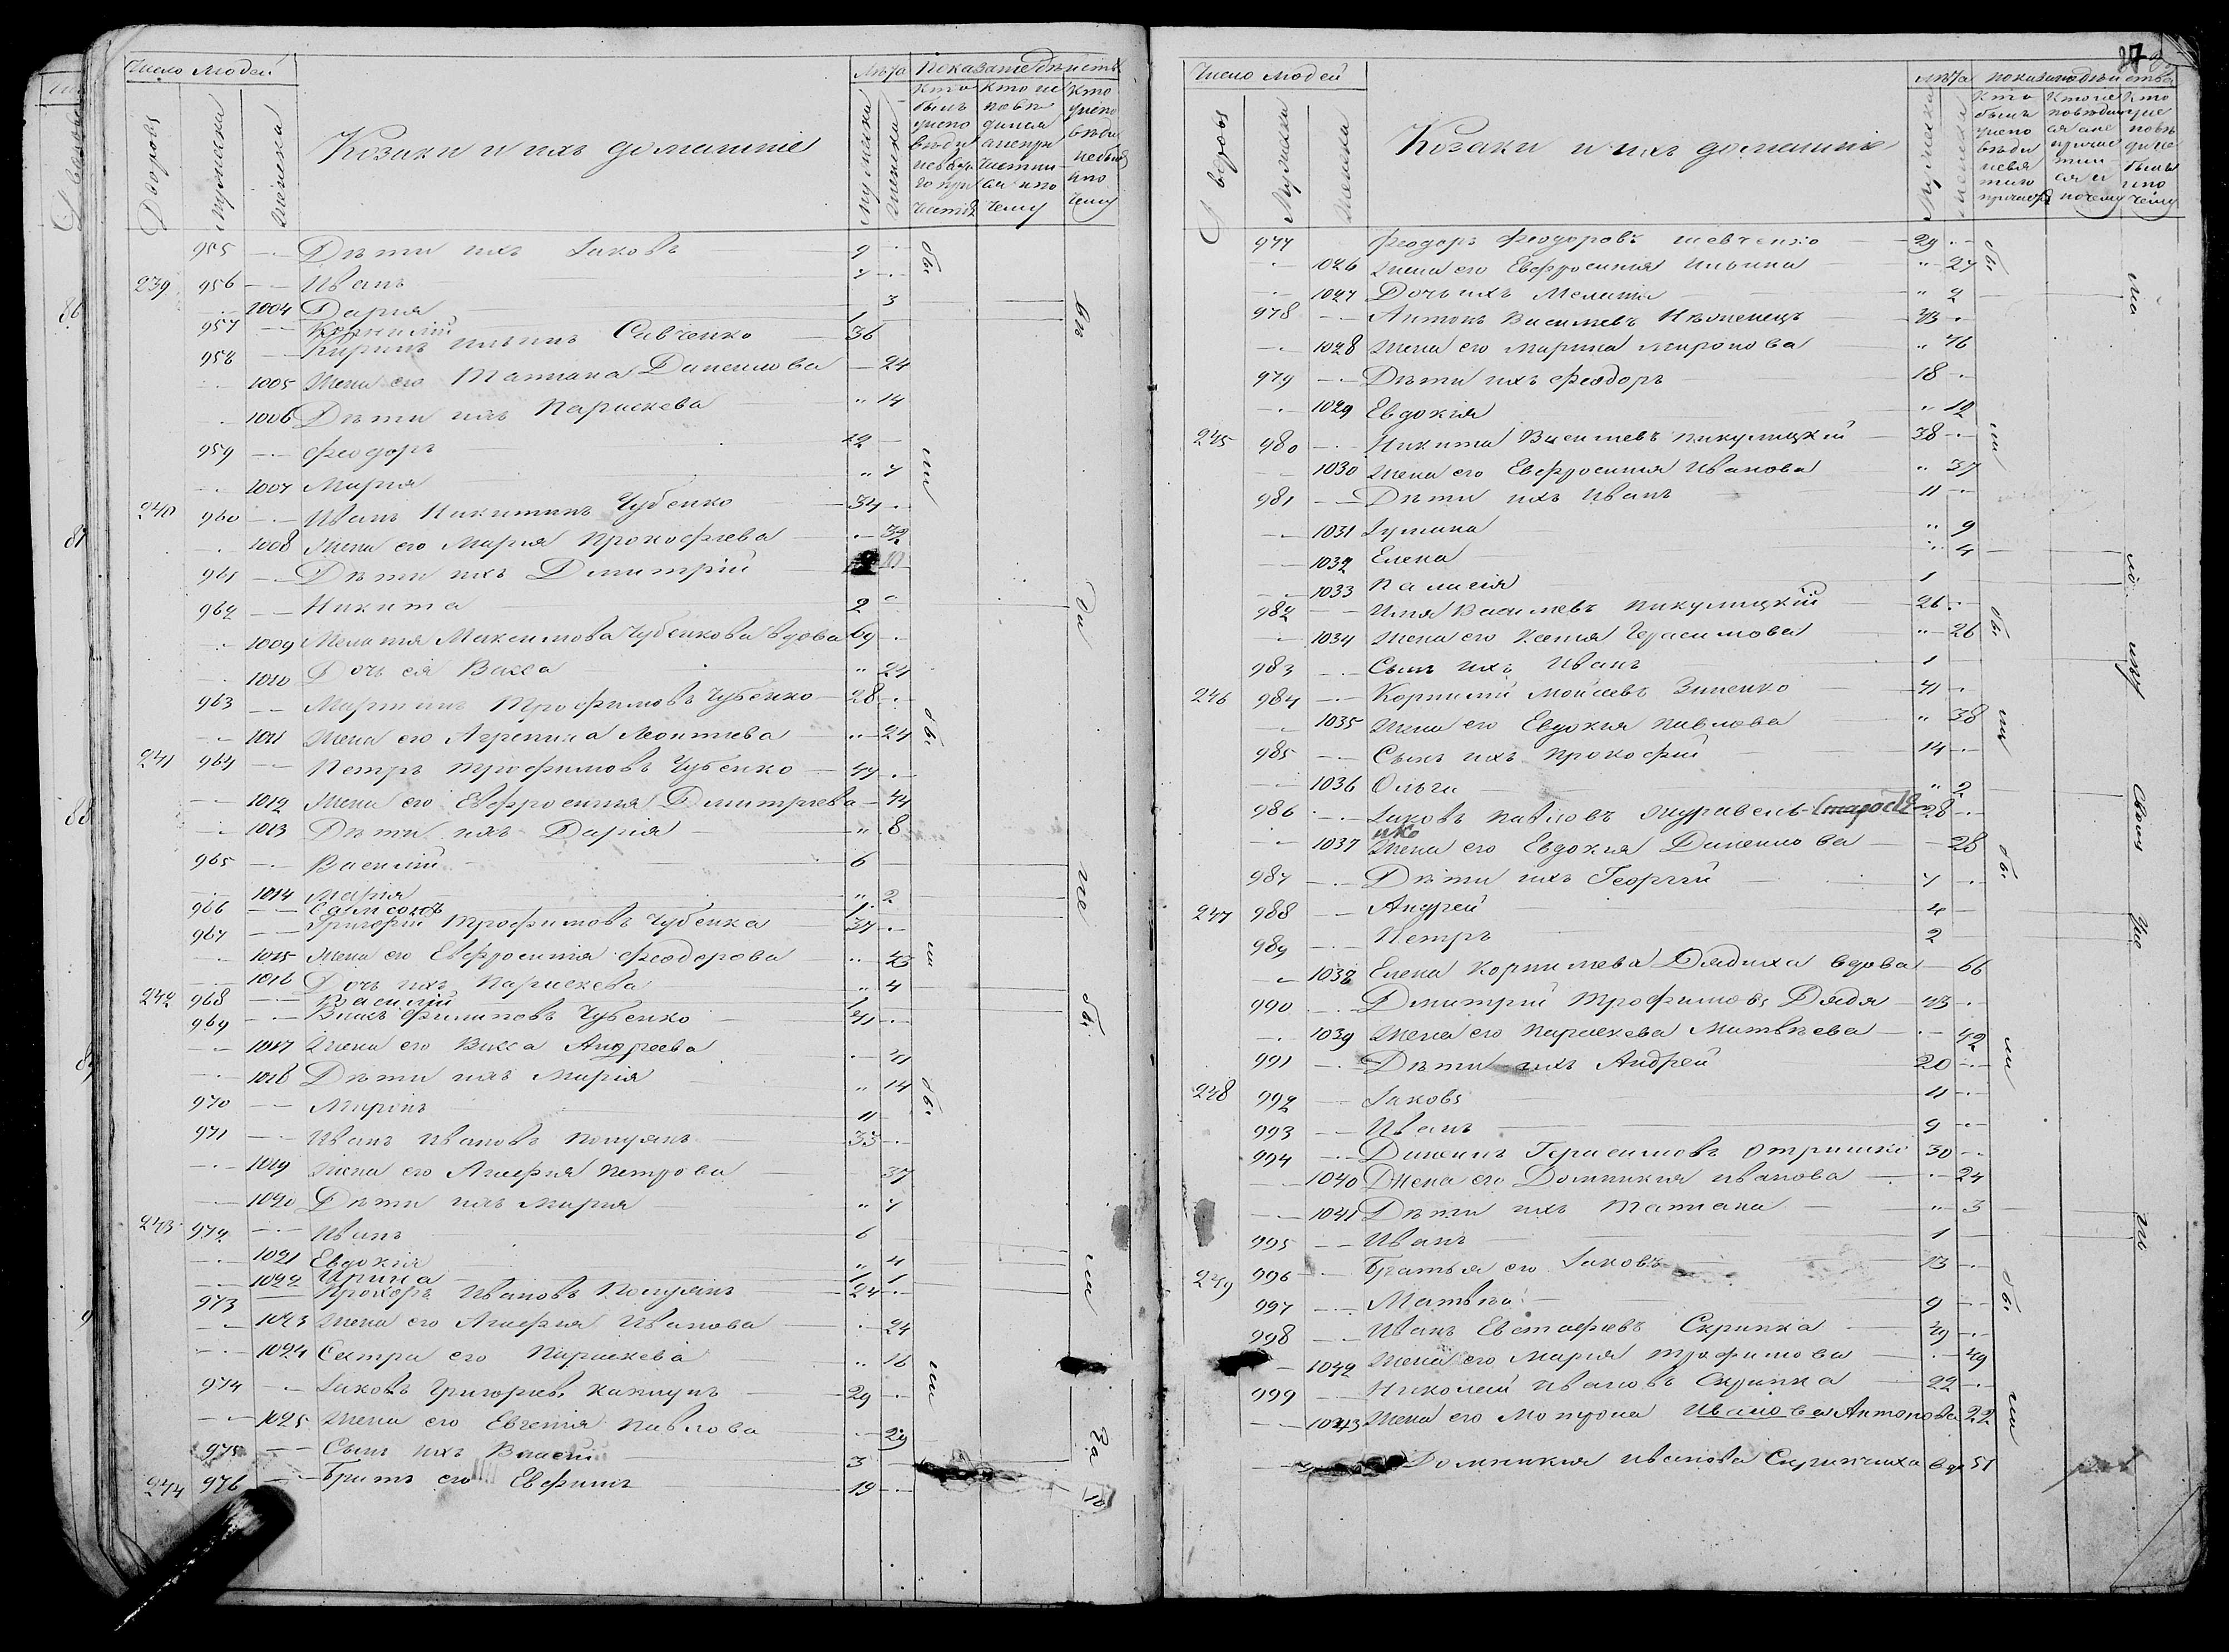 Число людей
Лѣта
Показательств
Дворовъ
Мужеска
Женска
Козаки и ихъ домашніе
Мужеска
Женска
Кто былъ у исповѣди и св. того причастія
Кто исповѣдался а не причастился и по чему
Кто у исповѣди не былъ и по чему
955 Дѣти ихъ Іаковъ 9
239 956 Иванъ 7
1004 Дарія 3
957 Корнилій 1
958 Кирилъ Ильинъ Савченко 36
1005 Жена его Татіана Данилова 24
1006 Дѣти ихъ Параскева 14
959 Феодоръ 12
1007 Марія 7
240 960 Иванъ Никитинъ Чубенко 34
1008 Жена его Марія Прокофіева 32
961 Дѣти ихъ Дмитрій 10
962 Никита 2
1009 Мелатія Максимова Чубенкова вдова 69
1010 Дочь ея Васса 24
963 Мартинъ Трофимовъ Чубенко 28
1011 Жена его Агрепина Леонтіева 24
241 964 Петръ Трофимовъ Чубенко 47
1012 Жена его Евфросинія Дмитріева 44
1013 Дѣти ихъ Дарія 8
965 Василій 6
1014 Марія 2
966 Самсонъ 1
967 Григорій Трофимовъ Чубенко 37
1015 Жена его Евфросинія Феодорова 43
1016 Дочь ихъ Параскева 4
242 968 Василій 1
969 Филиповъ Чубенко 41
1017 Жена его Васса Андреева 41
1018 Дѣти ихъ Марія 14
970 Миронъ 11
971 Иванъ Ивановъ Попуянъ 33
1019 Жена его Агафія Петрова 37
1020 Дѣти ихъ Марія 7
243 972 Иванъ 6
1021 Евдокія 4
1022 Ирина 1 1
973 Прохоръ Ивановъ Попуянъ 24
1023 Жена его Агафія Иванова 24
1024 Сестра его Параскева 16
974 Іаковъ Григорьевъ Каплунъ 29
1025 Жена его Евгенія Павлова 29
975 Сынъ ихъ Власій 3
244 976 Братъ его Евфимъ 19
бы ли бы ли бы ли
въ ди не бы ли
За
10
87
Число людей
Лѣта
показательства
Дворовъ
Мужеска
Женска
Козаки и ихъ домашніе
Мужеска
Женска
977 Феодоръ Феодоровъ Шевченко 29
1026 Жена его Евфросинія Ильина 27
1027 Дочь ихъ Мелатія 2
978 Антонъ Василіевъ Нѣженецъ 43
1028 Жена его Марина Миронова 46
979 Дѣти ихъ Феодоръ 18
1029 Евдокія 12
245 980 Никита Василіевъ Пикулицкій 38
1030 Жена его Евфросинія Иванова 37
981 Дѣти ихъ Иванъ 11
1031 Іуліана 9
1032 Елена 4
1033 Паласія 1
982 Илія Василіевъ Пикулицкій 26
1034 Жена его Ксенія Герасимова 26
983 Сынъ ихъ Иванъ 1
246 984 Корнилій Мойсіевъ Зиненко 41
1035 Жена его Евдокія Павлова 38
985 Сынъ ихъ Прокофій 14
1036 Ольга 2
986 Іаковъ Павловъ Журавель 28
1037 Жена его Евдокія Данилова 28
987 Дѣти ихъ Георгій 7
247 988 Андрей 4
989 Петръ 2
1038 Елена Корнилева Дядиха вдова 66
990 Дмитрій Трофимовъ Дядя 43
1039 Жена его Параскева Матвѣева 42
991 Дѣти ихъ Андрей 20
248 992 Іаковъ 11
993 Иванъ 9
994 Даніилъ Герасимовъ Отришко 30
1040 Жена его Домникія Иванова 24
1041 Дѣти ихъ Татіана 3
995 Иванъ 1
249 996 Братья его Іаковъ 13
997 Матвѣй 9
998 Иванъ Евстафіевъ Скрипка 49
1042 Жена его Марія Трофимова 49
999 Николай Ивановъ Скрипка 22
1043 Жена его Мотрона Иванова Антонова 22
Домникія Иванова Скрипчиха вд 51
бы ли бы ли бы ли бы ли